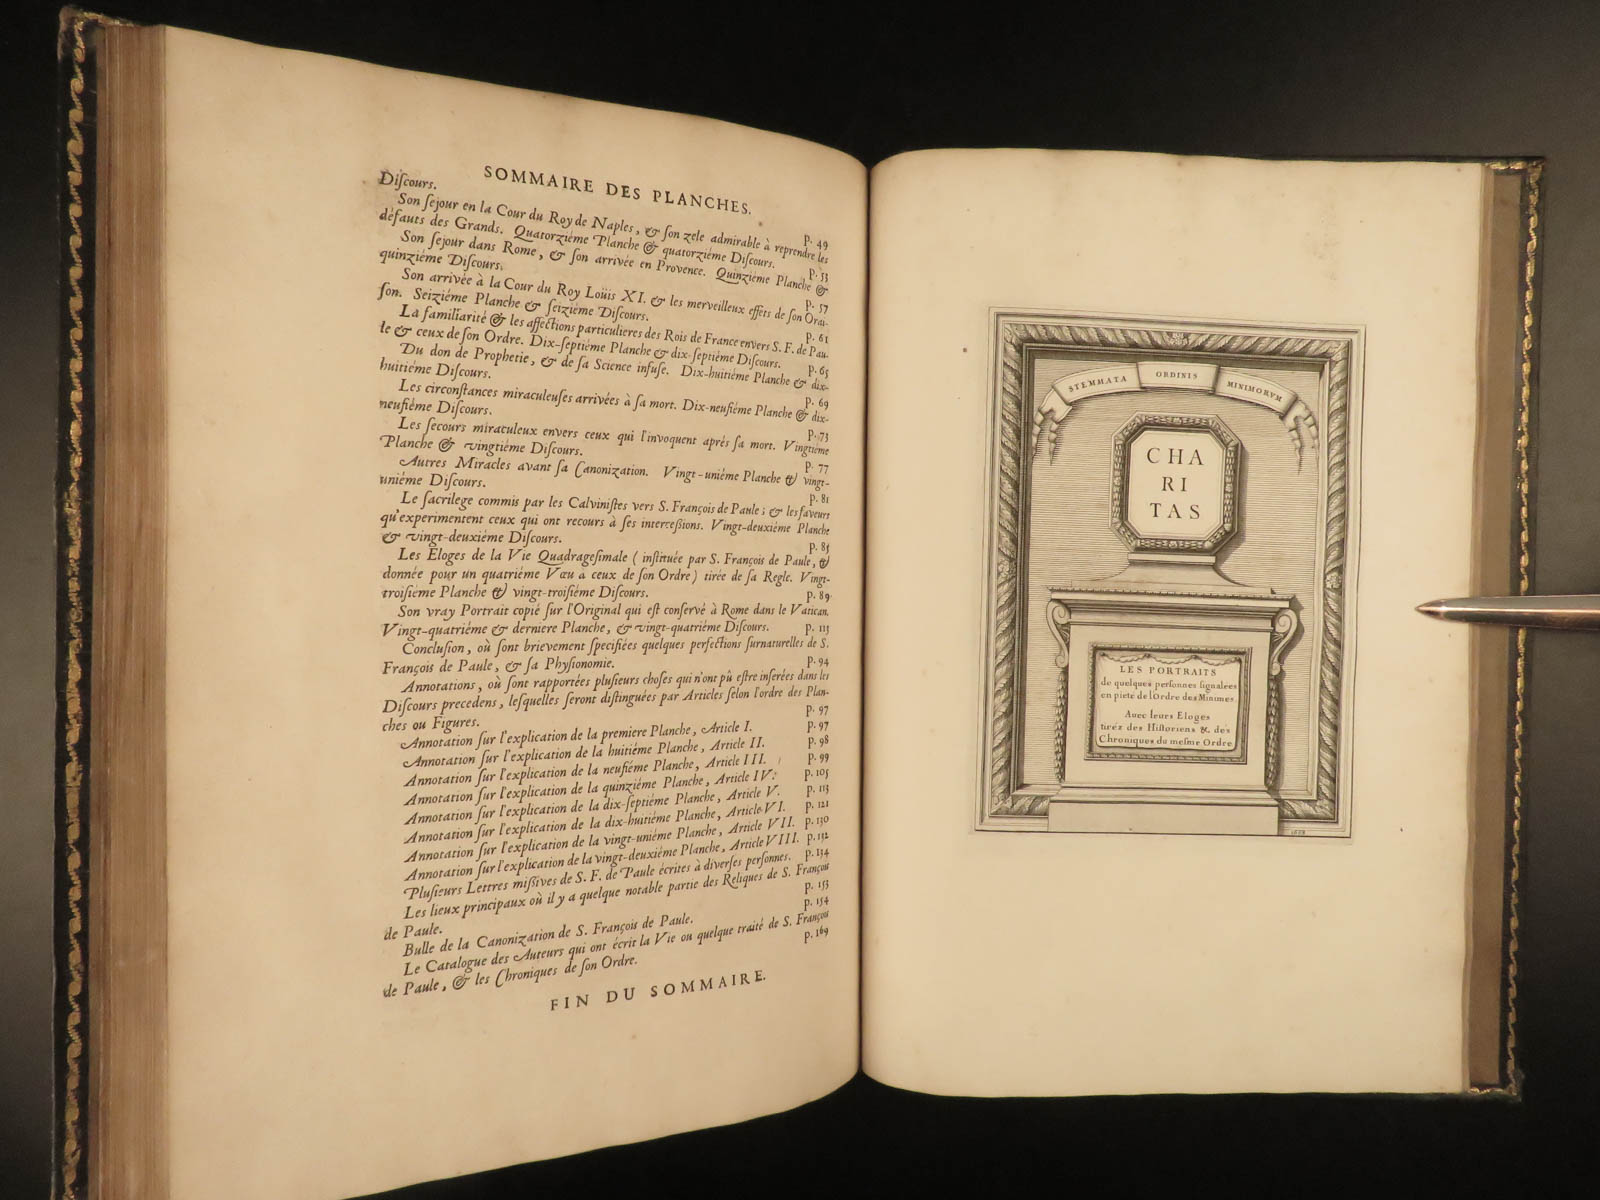 SOMMAIRE DES PLANCHES.
Diſcours. p. 49
Son ſejour en la Cour du Roy de Naples, & ſon zele admirable à reprendre les
défauts des Grands. Quatorziéme Planche & quatorziéme Diſcours. p. 53
Son ſejour dans Rome, & ſon arrivée en Provence. Quinziéme Planche &
quinziéme Diſcours. p. 57
Son arrivée à la Cour du Roy Loüis XI. & les merveilleux effets de ſon Orai-
ſon. Seiziéme Planche & ſeiziéme Diſcours. p. 61
La familiarité & les affections particulieres des Rois de France envers S. F. de Pau-
le & ceux de ſon Ordre. Dix-ſeptiéme Planche & dix-ſeptiéme Diſcours. p. 65
Du don de Prophetie, & de ſa Science infuſe. Dix-huitiéme Planche & dix-
huitiéme Diſcours. p. 69
Les circonſtances miraculeuſes arrivées à ſa mort. Dix-neufiéme Planche & dix-
neufiéme Diſcours. p. 73
Les ſecours miraculeux envers ceux qui l'invoquent aprés ſa mort. Vingtiéme
Planche & vingtiéme Diſcours. p. 77
Autres Miracles avant ſa Canonization. Vingt-uniéme Planche & vingt-
uniéme Diſcours. p. 81
Le ſacrilege commis par les Calviniſtes vers S. François de Paule; & les faveurs
qu'experimentent ceux qui ont recours à ſes interceſſions. Vingt-deuxiéme Planche
& vingt-deuxiéme Diſcours. p. 85
Les Eloges de la Vie Quadrageſimale (inſtituée par S. François de Paule, &
donnée pour un quatriéme Vœu a ceux de ſon Ordre) tirée de ſa Regle. Vingt-
troiſiéme Planche & vingt-troiſiéme Diſcours. p. 89
Son vray Portrait copié ſur l'Original qui eſt conſervé à Rome dans le Vatican.
Vingt-quatriéme & derniere Planche, & vingt-quatriéme Diſcours. p. 113
Concluſion, où ſont brievement ſpecifiées quelques perfections ſurnaturelles de S.
François de Paule, & ſa Phyſionomie. p. 94
Annotations, où ſont rapportées pluſieurs choſes qui n'ont pû eſtre inſerées dans les
Diſcours precedens, leſquelles ſeront diſtinguées par Articles ſelon l'ordre des Plan-
ches ou Figures. p. 97
Annotation ſur l'explication de la premiere Planche, Article I. p. 97
Annotation ſur l'explication de la huitiéme Planche, Article II. p. 98
Annotation ſur l'explication de la neufiéme Planche, Article III. p. 99
Annotation ſur l'explication de la quinziéme Planche, Article IV. p. 105
Annotation ſur l'explication de la dix-ſeptiéme Planche, Article V. p. 113
Annotation ſur l'explication de la dix-huitiéme Planche, Article VI. p. 121
Annotation ſur l'explication de la vingt-uniéme Planche, Article VII. p. 130
Annotation ſur l'explication de la vingt-deuxiéme Planche, Article VIII. p. 132
Pluſieurs Lettres miſſives de S. F. de Paule écrites à diverſes perſonnes. p. 134
Les lieux principaux où il y a quelque notable partie des Reliques de S. François
de Paule. p. 153
Bulle de la Canonization de S. François de Paule. p. 154
Le Catalogue des Auteurs qui ont écrit la Vie ou quelque traité de S. François
de Paule, & les Chroniques de ſon Ordre. p. 169
FIN DU SOMMAIRE.
STEMMATA ORDINIS MINIMORVM
CHA
RI
TAS
LES PORTRAITS
de quelques perſonnes ſignalees
en pieté de l'Ordre des Minimes
Avec leurs Eloges
tirez des Hiſtoriens & des
Chroniques du meſme Ordre